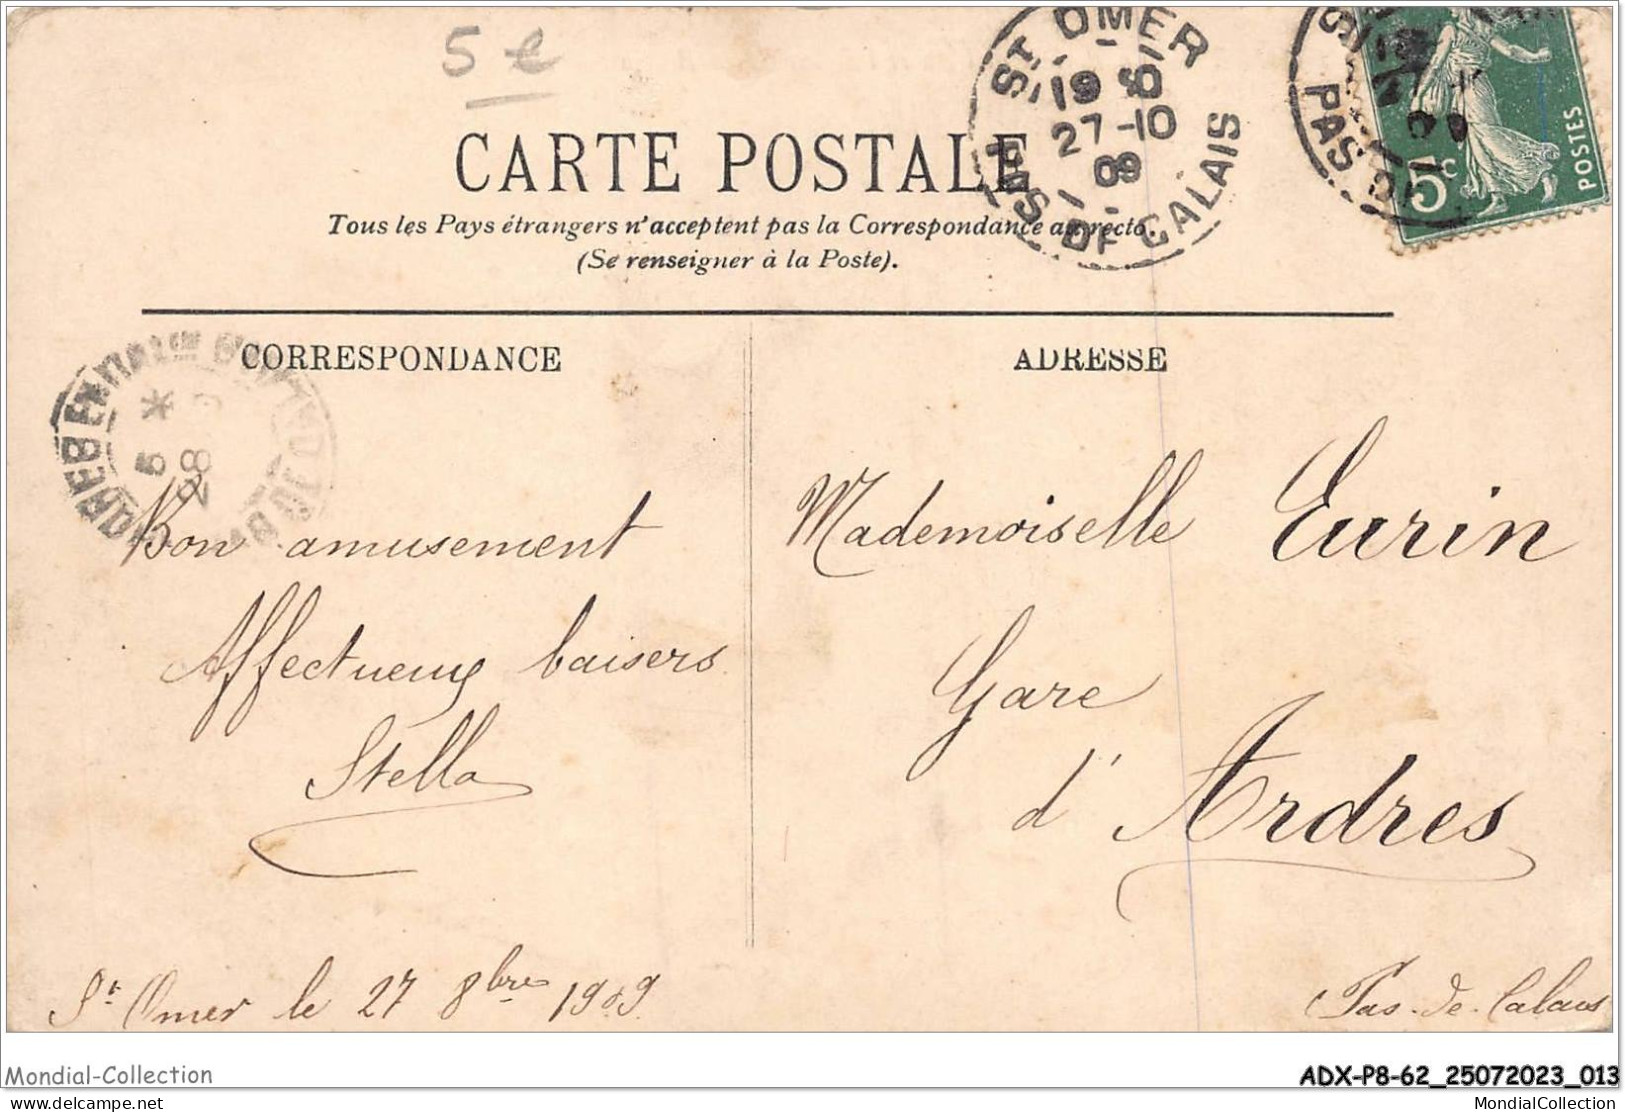 5 €
CARTE POSTALE
Tous les Pays étrangers n'acceptent pas la Correspondance au recto.
(Se renseigner à la Poste).
ST OMER
27-10
09
PAS DE CALAIS
PAS
5c
POSTES
CORRESPONDANCE
ADRESSE
5 *
28
Bon amusement
Affectueux baisers
Stella
St Omer le 27 8bre 1909
Mademoiselle Eurin
Gare
d'Ardres
Pas-de-Calais
Mondial-Collection
ADX-P8-62_25072023_013
delcampe.net
MondialCollection